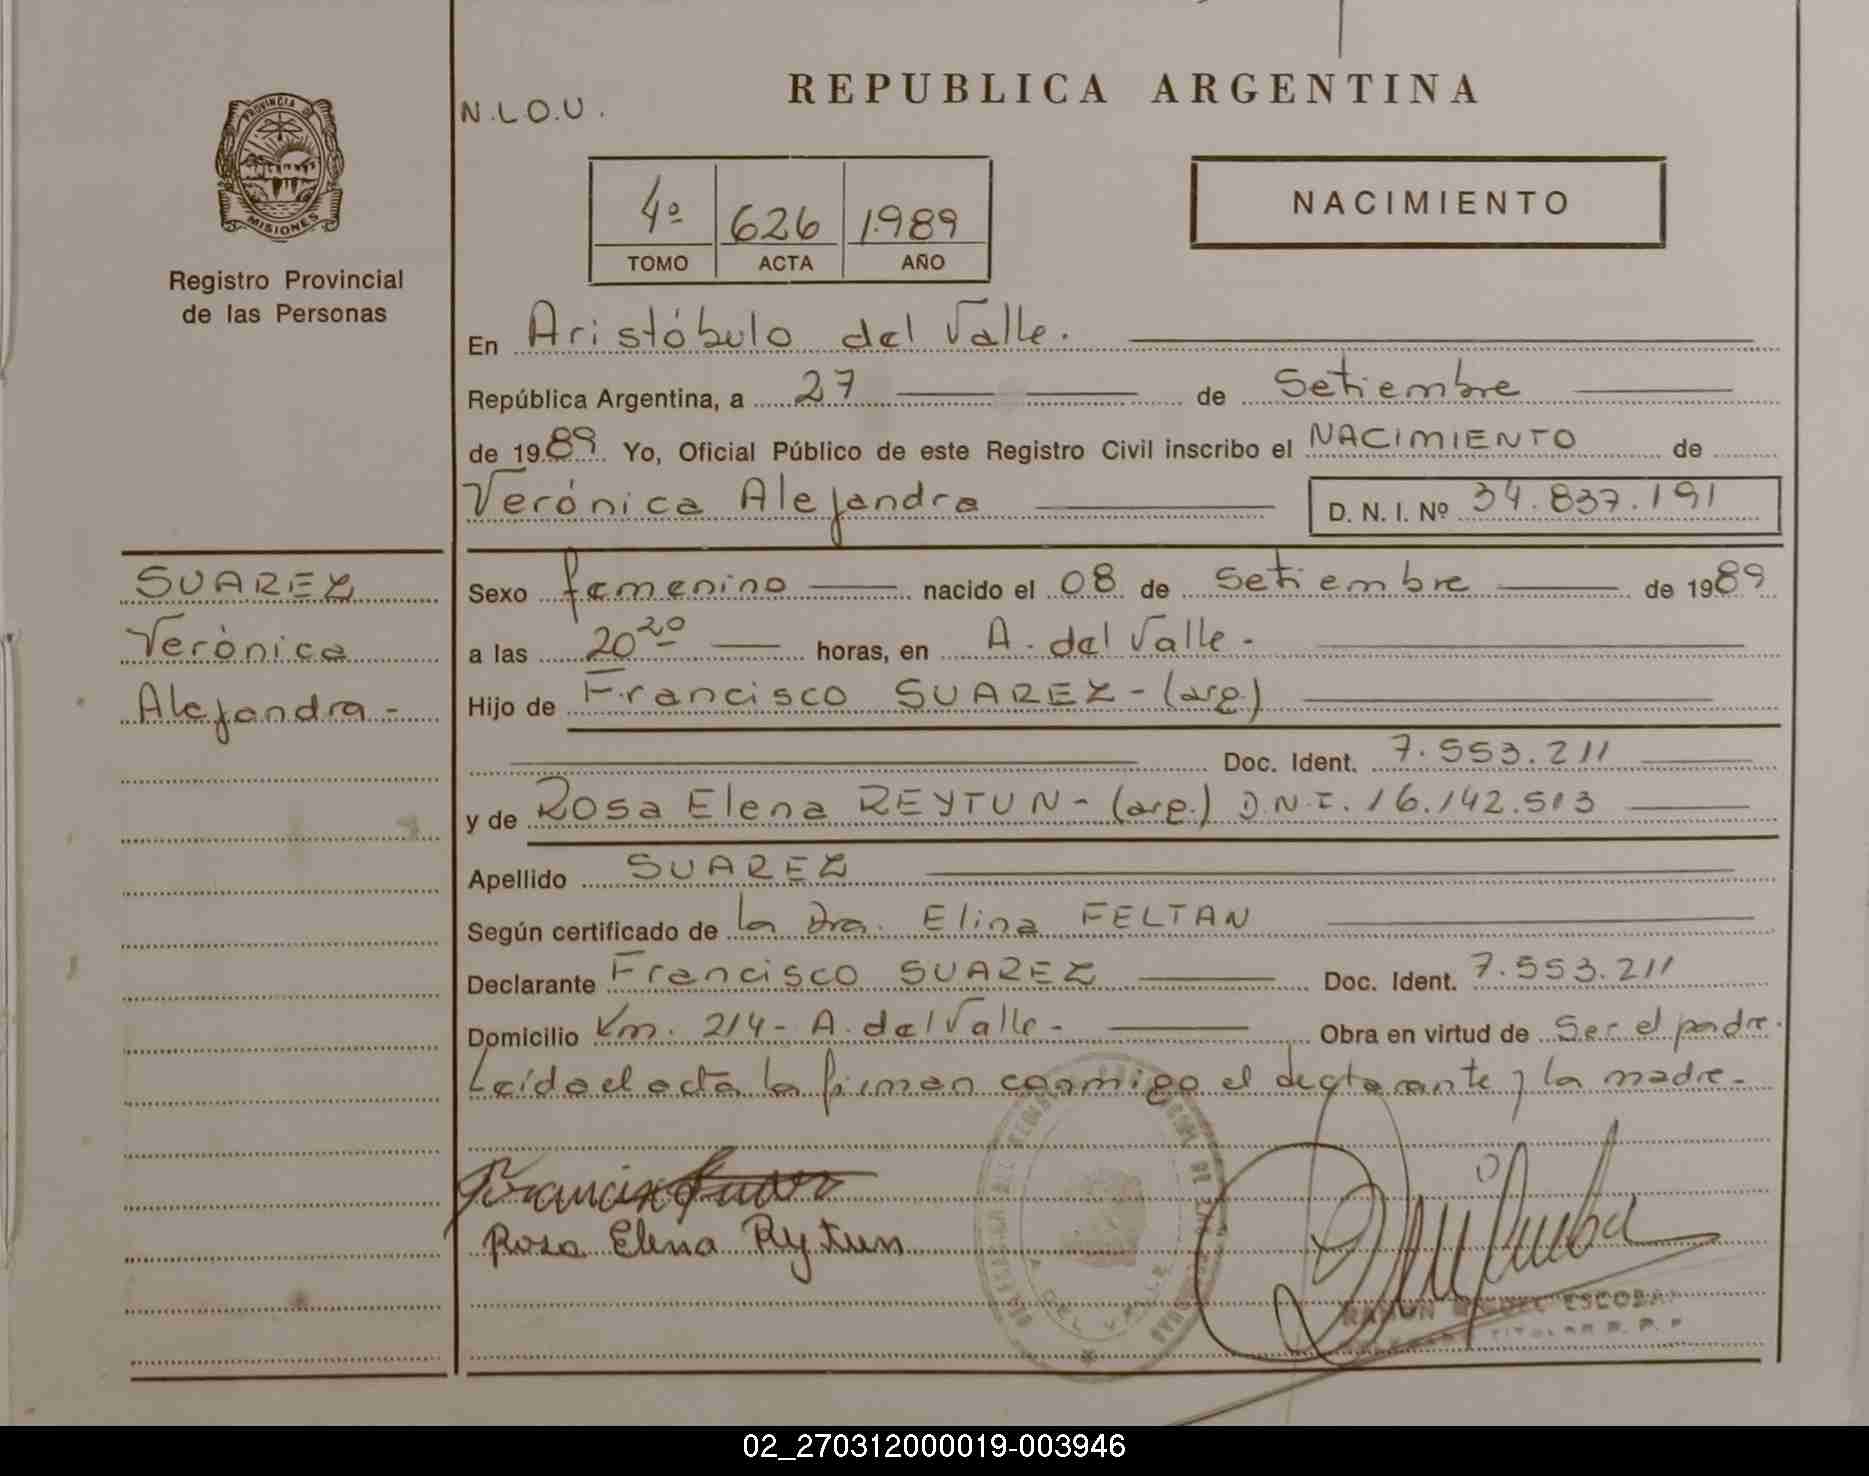 PROVINCIA DE
MISIONES
Registro Provincial
de las Personas
N.L.O.U.
REPUBLICA ARGENTINA
4º 626 1989
TOMO ACTA AÑO
NACIMIENTO
En Aristóbulo del Valle.
República Argentina, a 27 de Setiembre
de 1989 Yo, Oficial Público de este Registro Civil inscribo el NACIMIENTO de
Verónica Alejandra D. N. I. Nº 34.837.191
SUAREZ
Verónica
Alejandra -
Sexo femenino nacido el 08 de Setiembre de 1989
a las 20 20 horas, en A. del Valle -
Hijo de Francisco SUAREZ - (arg.)
Doc. Ident. 7.553.211
y de Rosa Elena REYTUN - (arg.) D.N.I. 16.142.513
Apellido SUAREZ
Según certificado de la Dra. Elina FELTAN
Declarante Francisco SUAREZ Doc. Ident. 7.553.211
Domicilio Km. 214 - A. del Valle - Obra en virtud de Ser el padre.
Leída el acta la firman conmigo el declarante y la madre -
Francisco Suarez
Rosa Elena Rytun
A. DEL VALLE
RAMON MIGUEL ESCOBAR
TITULAR R. P. P.
02_270312000019-003946